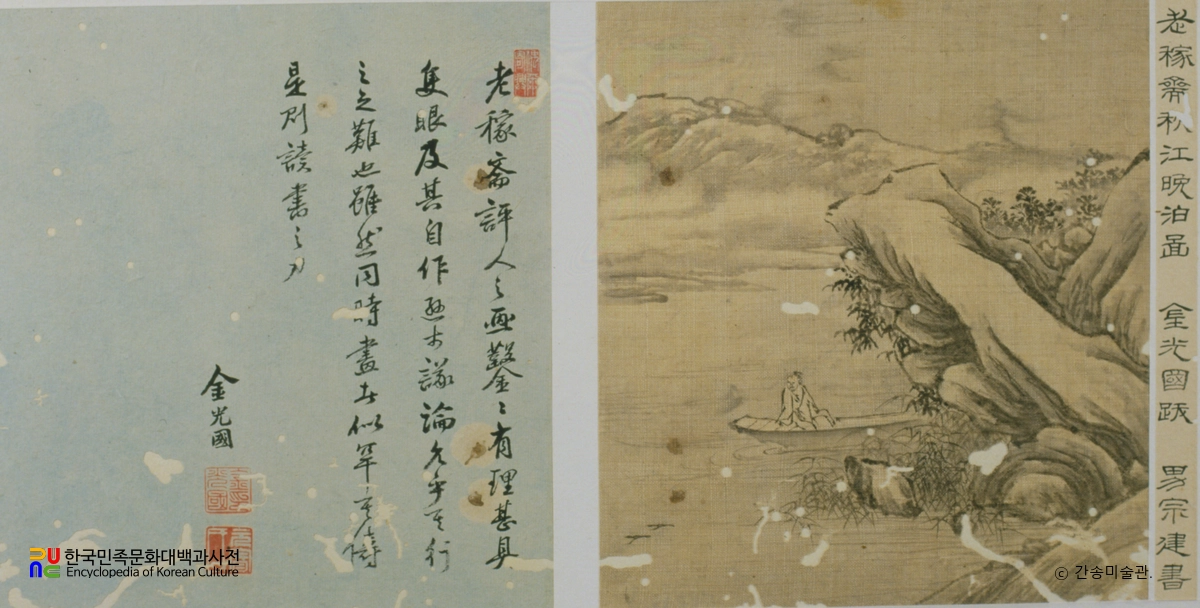 老稼齋秋江晚泊啚 金光國跋 男宗建書
老稼斎評人之畫鑿〻有理甚具
隻眼及其自作遜於議論乎其行
之之難也雖然同時畫士似罕其儔
是則讀書之力
金光國
한국민족문화대백과사전
Encyclopedia of Korean Culture
© 간송미술관.